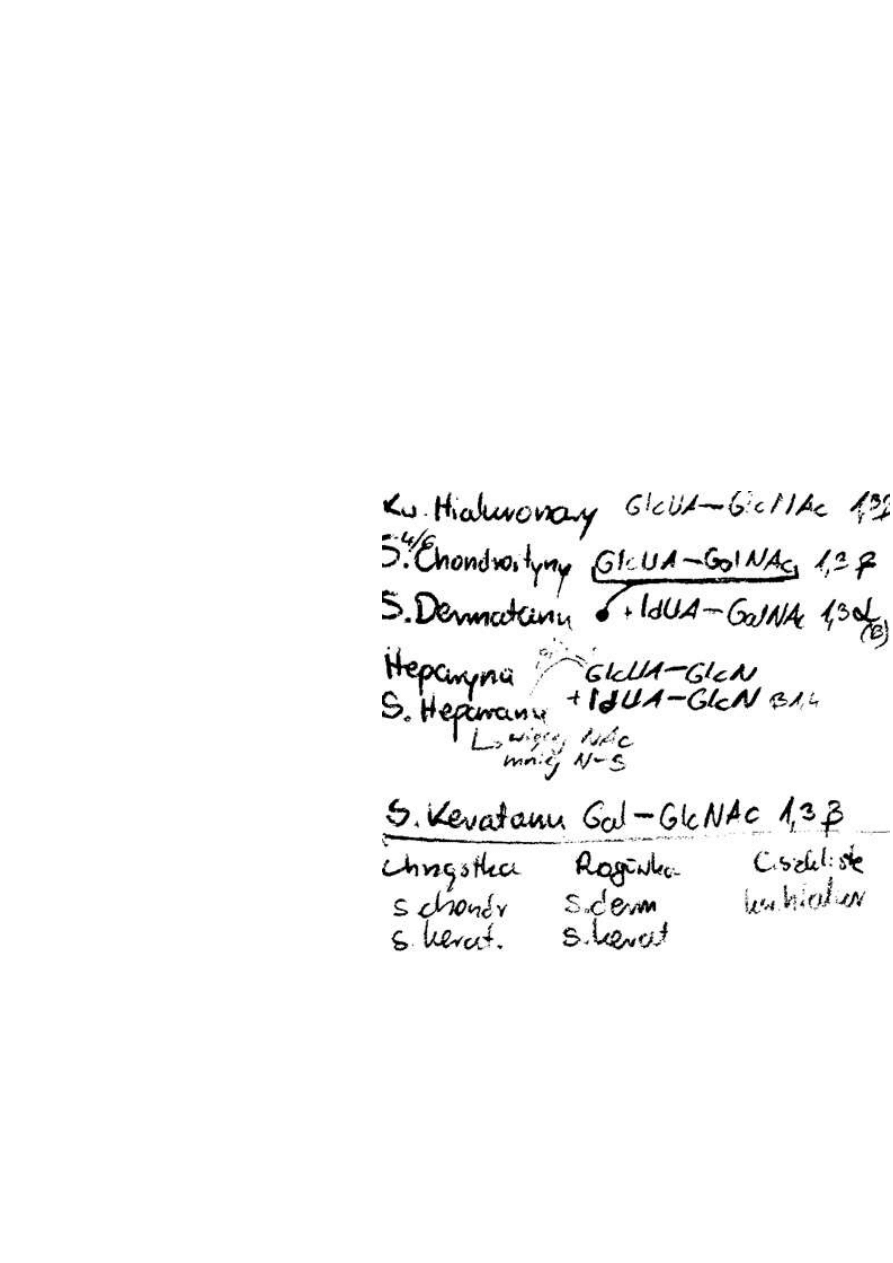 Kw. Hialuronowy GlcUA–GlcNAc 1,3β
S.4/6 Chondroityny GlcUA–GalNAc 1,3 β
S.Dermatanu + IdUA–GalNAc 1,3 α (β)
Heparyna GlcUA–GlcN
S. Heparanu + IdUA–GlcN β1,4
więcej NAc
mniej N–S
S. Keratanu Gal–GlcNAc 1,3 β
Chrząstka Rogówka C.szkliste
s chondr S.derm kw.hialur
s. kerat. S.kerat